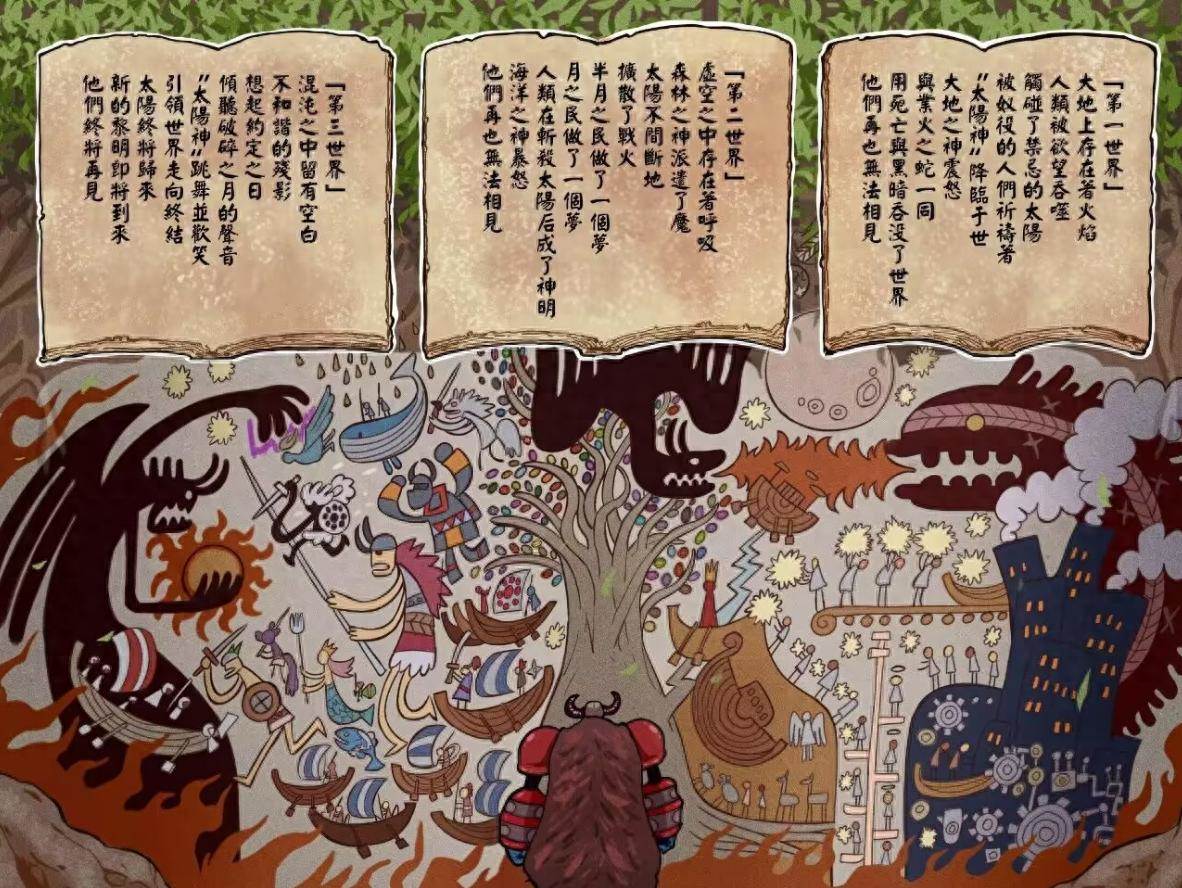 「第一世界」
大地上存在著火焰
人類被欲望吞噬
觸碰了禁忌的太陽
被奴役的人們祈禱著
“太陽神”降臨于世
大地之神震怒
與業火之蛇一同
用死亡與黑暗吞没了世界
他們再也無法相見
「第二世界」
虛空之中存在著呼吸
森林之神派遣了魔
太陽不間斷地
擴散了戰火
半月之民做了一個夢
月之民做了一個夢
人類在斬殺太陽后成了神明
海洋之神暴怒
他們再也無法相見
「第三世界」
混沌之中留有空白
不和諧的殘影
想起約定之日
傾聽破碎之月的聲音
“太陽神”跳舞並歡笑
引領世界走向終結
太陽終將歸來
新的黎明即將到來
他們終將再見